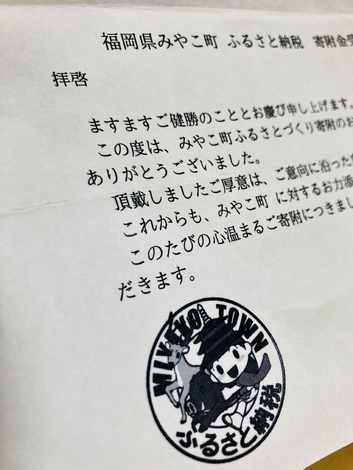 福岡県みやこ町 ふるさと納税 寄附金受
拝啓
ますますご健勝のこととお慶び申し上げます。
この度は、みやこ町ふるさとづくり寄附のお
ありがとうございました。
頂戴しましたご厚意は、ご意向に沿った
これからも、みやこ町 に対するお力添
このたびの心温まるご寄附につきまし
だきます。
MIYAKO TOWN
ふるさと納税